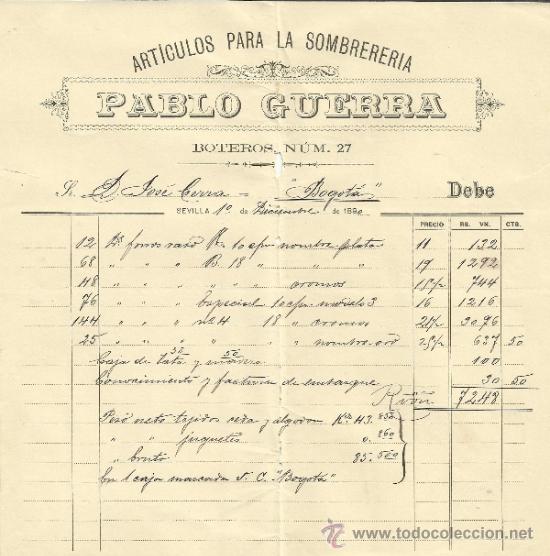 ARTÍCULOS PARA LA SOMBRERERIA
PABLO GUERRA
BOTEROS, NÚM. 27
Sr. D. José Cerra "Bogotá" Debe
SEVILLA 1º de Diciembre de 1890
PRECIO RS. VN. CTS.
12 Ds forros raso 10 nombre plata 11 132
68 " " " B. 18 " " " 19 1292
48 " " " " " cromos 15 1/2 744
76 " " " Especial 10 modelo 3 16 1216
144 " " " nº 4 18 " cromos 21 1/2 3096
25 " " " " " nombre oro 25 1/2 637 50
Caja de lata 50 y madera 50 100
Conocimiento y factura de embarque 30 50
Rvón 7248
Peso neto tejidos seda y algodon Kos 43.850
" " juguetes 0.860
" bruto 85.500
En 1 caja marcada J. C. "Bogotá"
todocoleccion.net